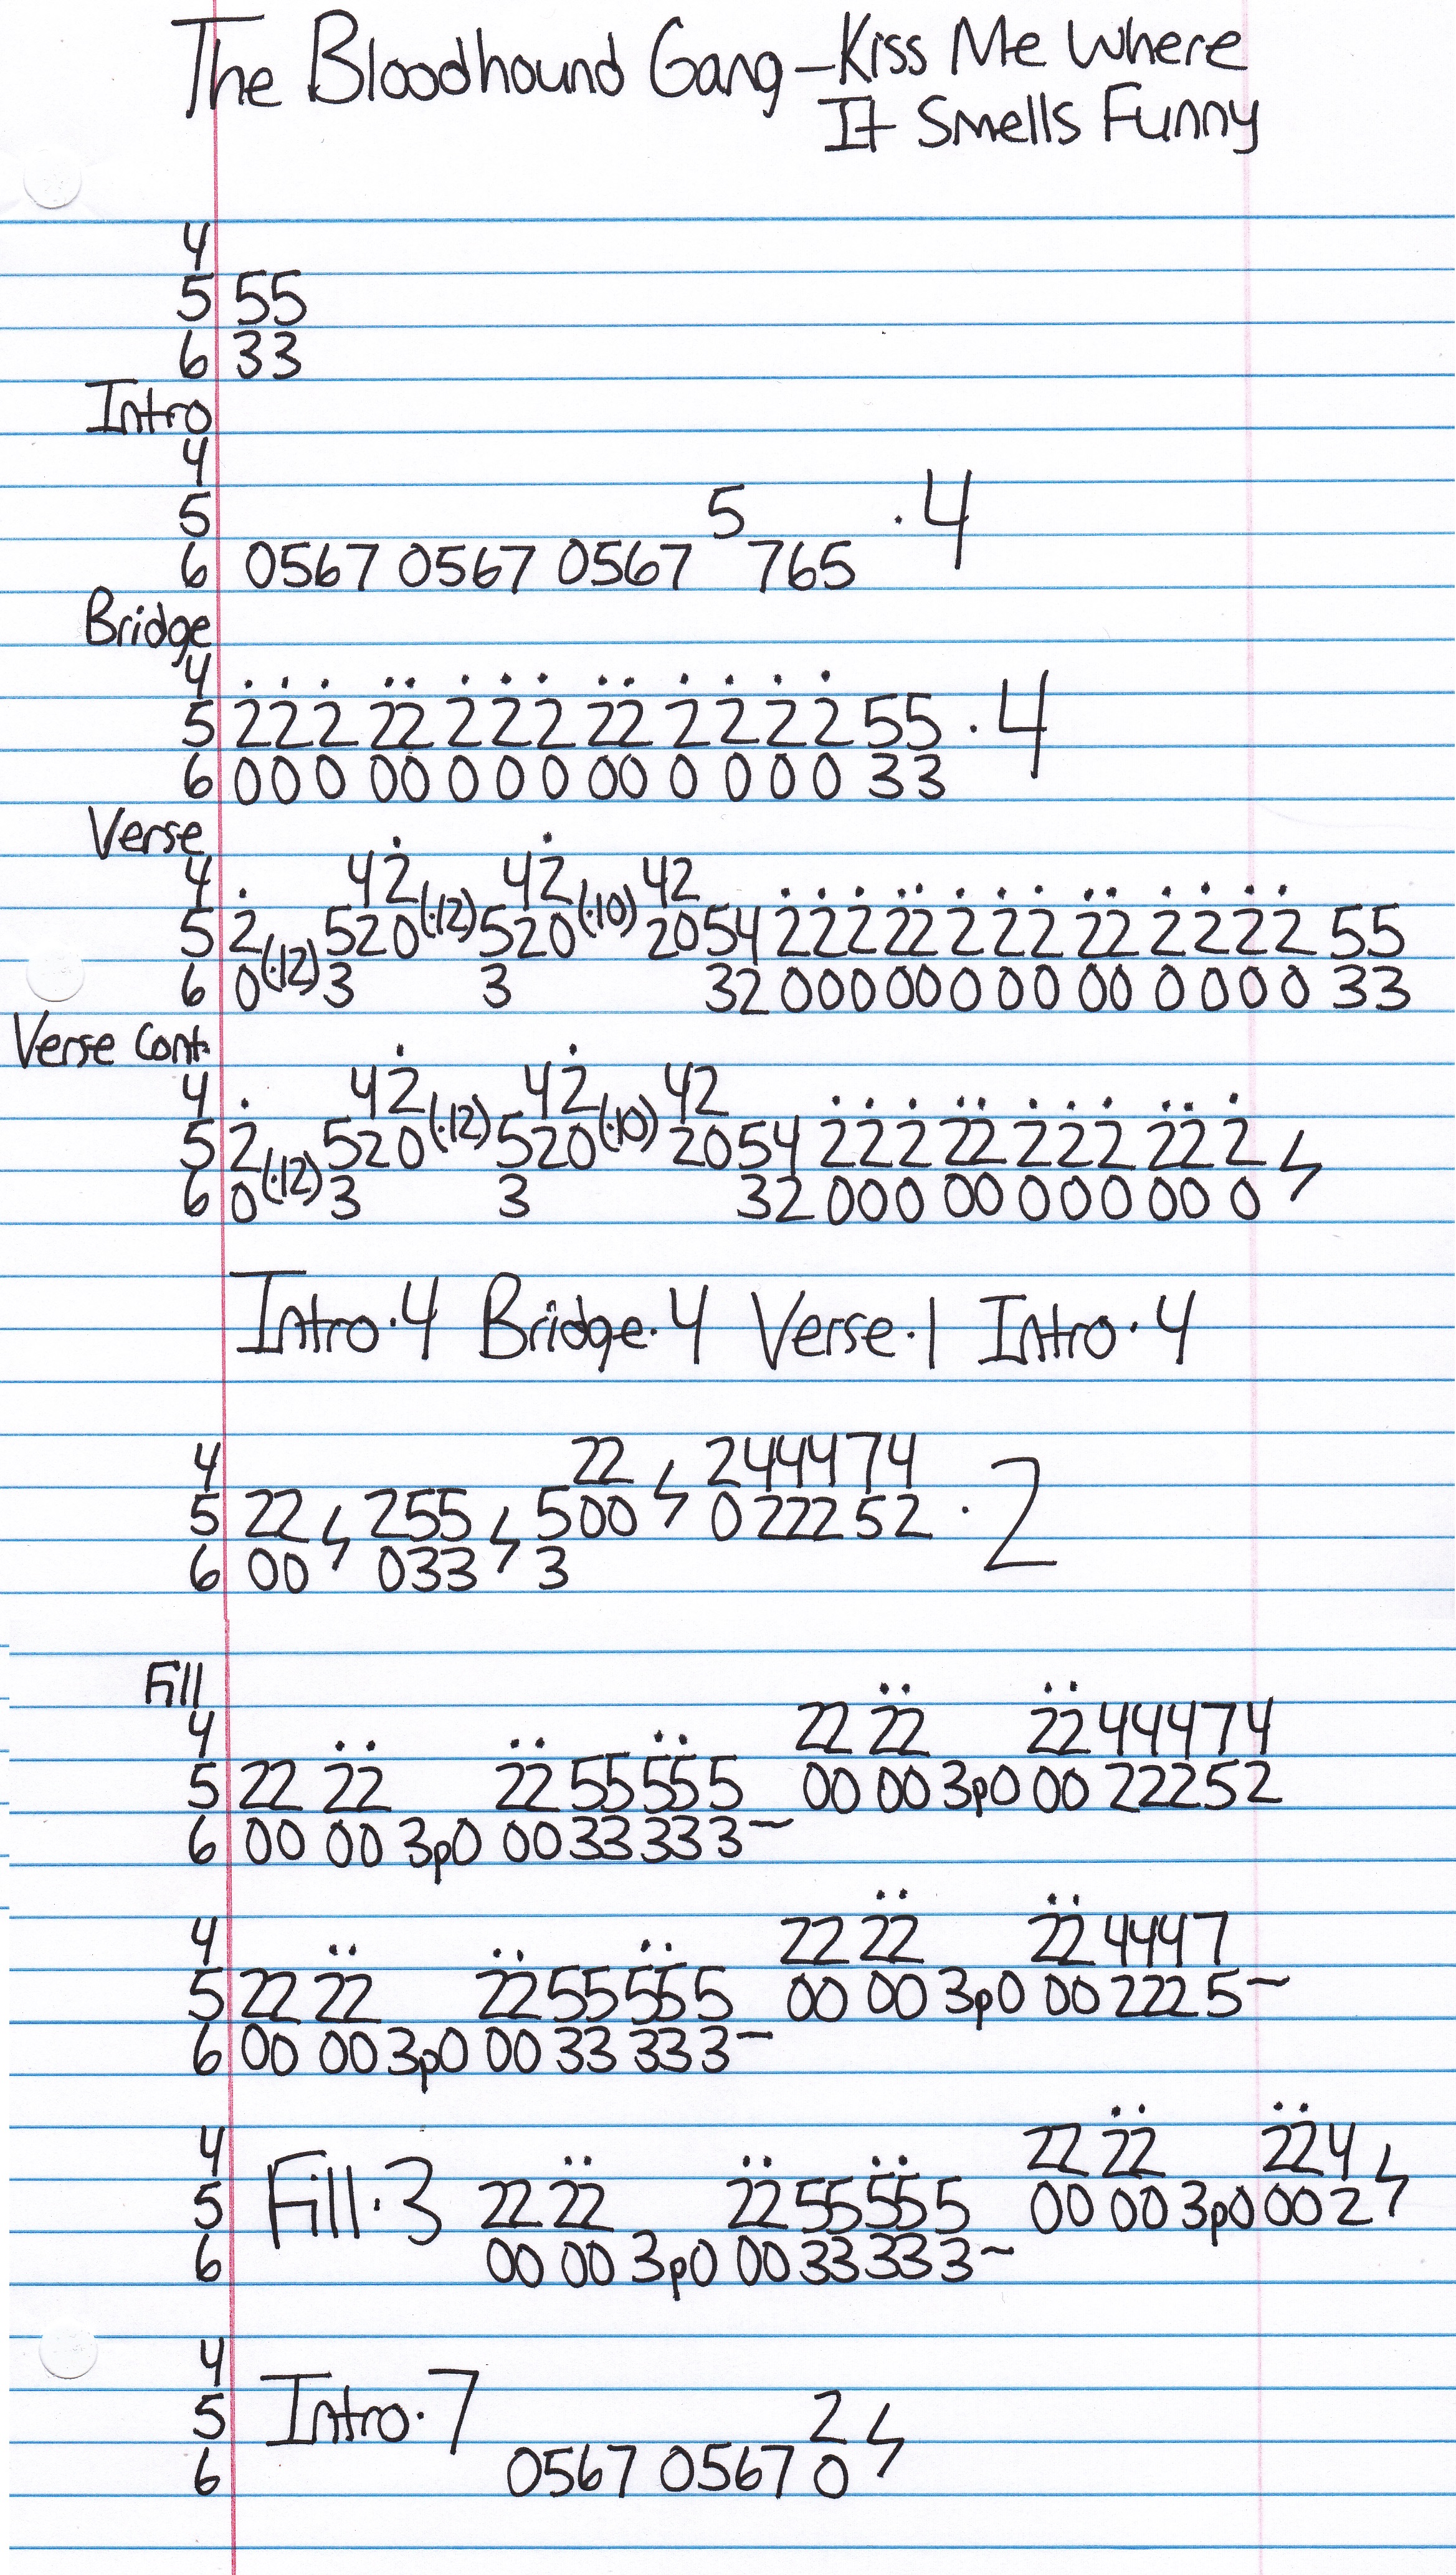 The Bloodhound Gang - Kiss Me Where
It Smells Funny
4
5 55
6 33
Intro
4
5 5 · 4
6 0567 0567 0567 765
Bridge
4
5 222 22 222 22 2222 55 · 4
6 000 00 000 00 0000 33
Verse
4 42 42 42
5 2 520(·12) 520(·10) 2054 222 22 222 22 2222 55
6 0(·12) 3 3 32 000 00 000 00 0000 33
Verse Cont.
4 42 42 42
5 2 520(·12) 520(·10) 2054 222 22 222 22 2
6 0(·12) 3 3 32 000 00 000 00 0
Intro·4 Bridge·4 Verse·1 Intro·4
4 22 244474
5 22 255 500 022252 · 2
6 00 033 3
Fill
4 22 22 2244474
5 22 22 22 55555 00 00 3p0 00 22252
6 00 00 3p0 00 33333~
4 22 22 22 4447
5 22 22 22 55 555 00 00 3p0 00 2225~
6 00 00 3p0 00 33 333~
4 22 22 224
5 Fill·3 22 22 22 55555 00 00 3p0 002
6 00 00 3p0 00 33333~
4
5 Intro·7 2
6 0567 0567 0